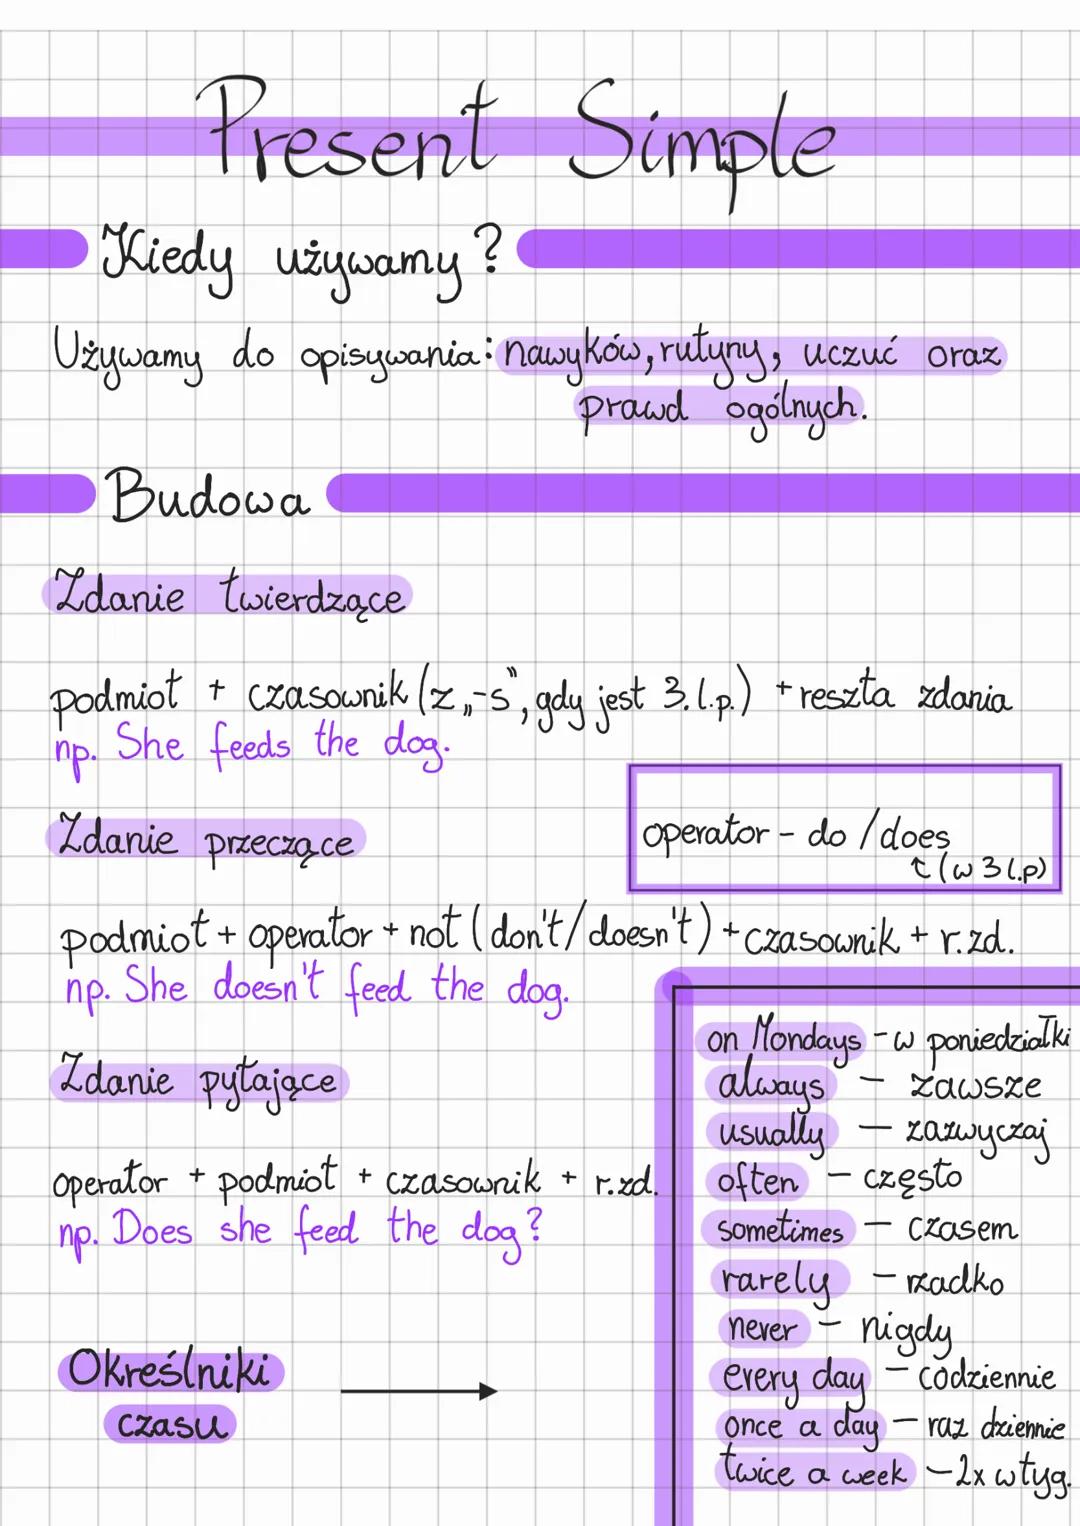 Present Simple
Kiedy używamy?
Używamy do opisywania: nawyków, rutyny, uczuć oraz
prawd ogólnych.
Budowa
Zdanie twierdzące
podmiot + czasownik (z „-s”, gdy jest 3. l.p.) + reszta zdania
np. She feeds the dog.
Zdanie przeczące
operator - do / does
↑ (w 3 l.p)
podmiot + operator + not (don't / doesn't) + czasownik + r.zd.
np. She doesn't feed the dog.
Zdanie pytające
operator + podmiot + czasownik + r.zd.
np. Does she feed the dog?
Określniki
czasu
on Mondays - w poniedziałki
always - zawsze
usually - zazwyczaj
often - często
sometimes - czasem
rarely - rzadko
never - nigdy
every day - codziennie
once a day - raz dziennie
twice a week - 2x w tyg.